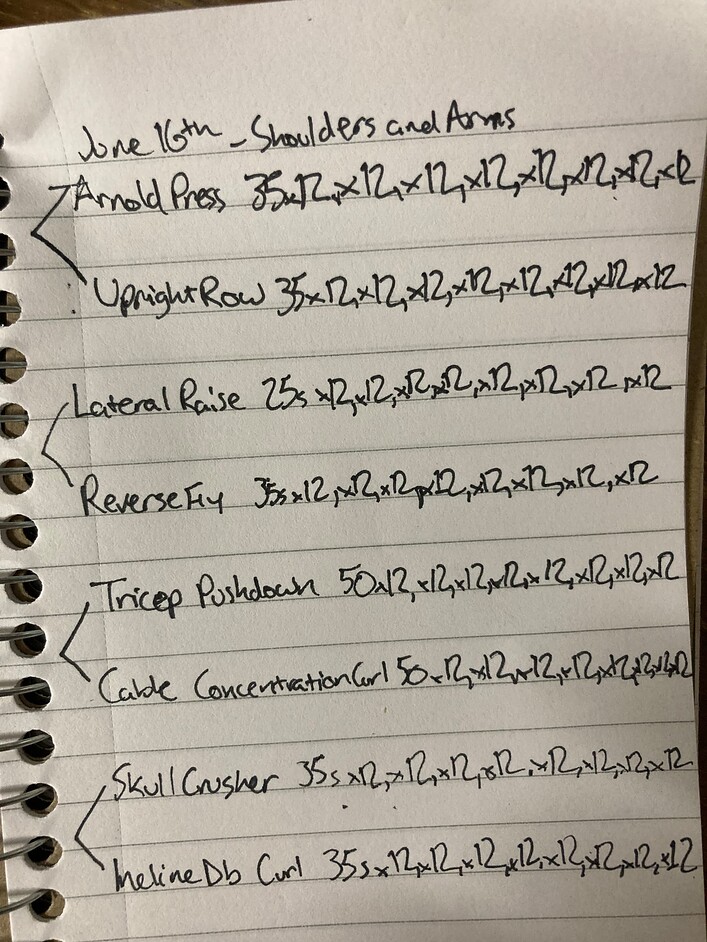 June 16th - Shoulders and Arms
Arnold Press 35x12, x12, x12, x12, x12, x12, x12, x12
Upright Row 35x12, x12, x12, x12, x12, x12, x12, x12
Lateral Raise 25s x12, x12, x12, x12, x12, x12, x12, x12
Reverse Fly 35s x12, x12, x12, x12, x12, x12, x12, x12
Tricep Pushdown 50x12, x12, x12, x12, x12, x12, x12, x12
Cable Concentration Curl 50x12, x12, x12, x12, x12, x12, x12, x12
Skull Crusher 35s x12, x12, x12, x12, x12, x12, x12, x12
Incline Db Curl 35s x12, x12, x12, x12, x12, x12, x12, x12